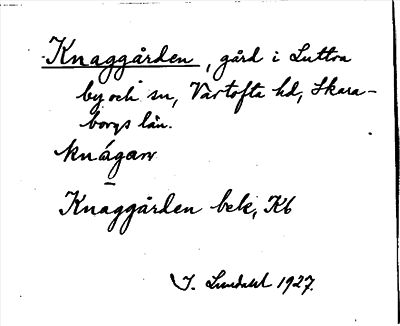 Knaggården, gård i Luttra
by och sn, Vartofta hd, Skara-
borgs län.
knágaṇ
Knaggården bek, Kb
J. Lundahl 1927.